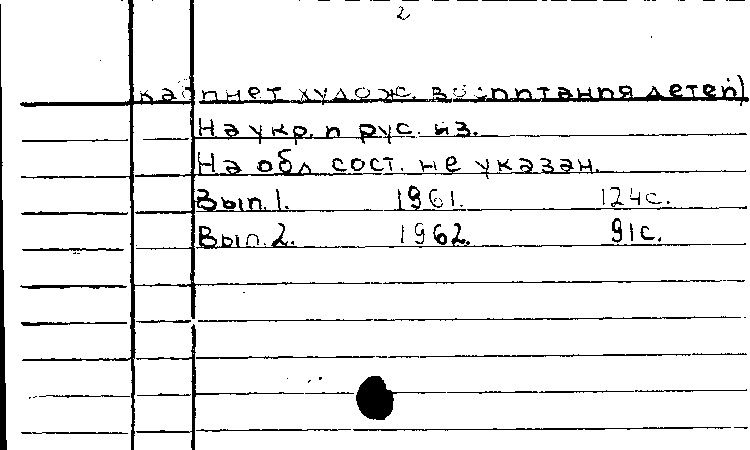 2
кабинет худож. воспитания детей)
На укр. и рус. яз.
На обл. сост. не указан.
Вып. 1. 1961. 124с.
Вып. 2. 1962. 91с.